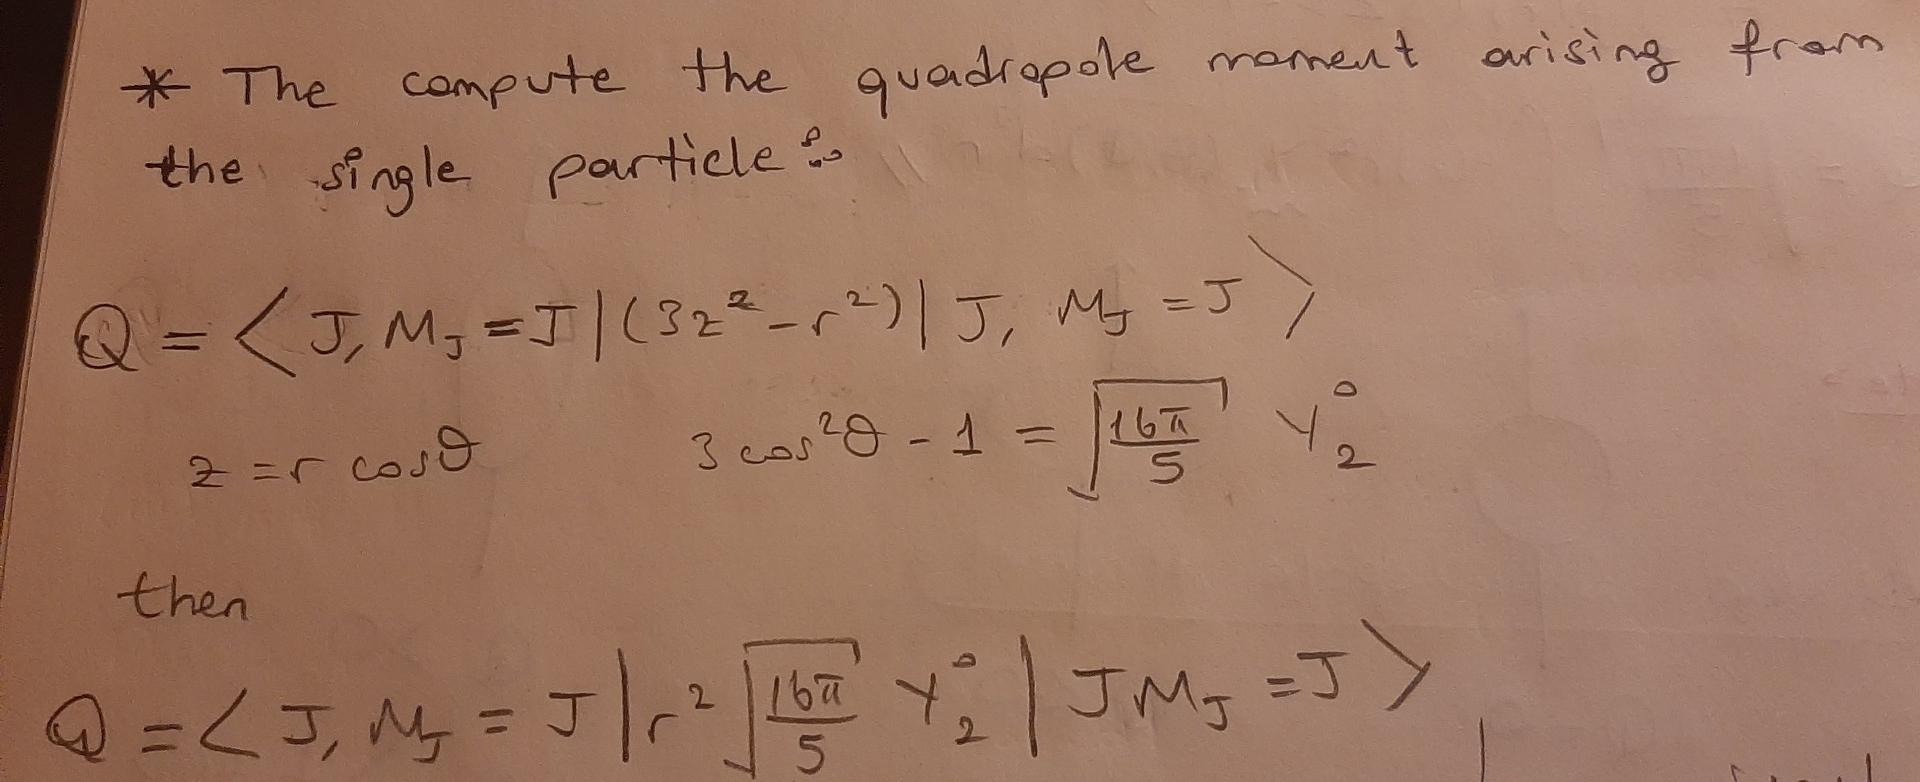 * The compute the quadropole moment arising from
the single particle :
Q = < J, M_J = J | (3z² - r²) | J, M_J = J >
z = r cosθ    3 cos²θ - 1 = √(16π/5) Y₂⁰
then
Q = < J, M_J = J | r² √(16π/5) Y₂⁰ | J M_J = J >